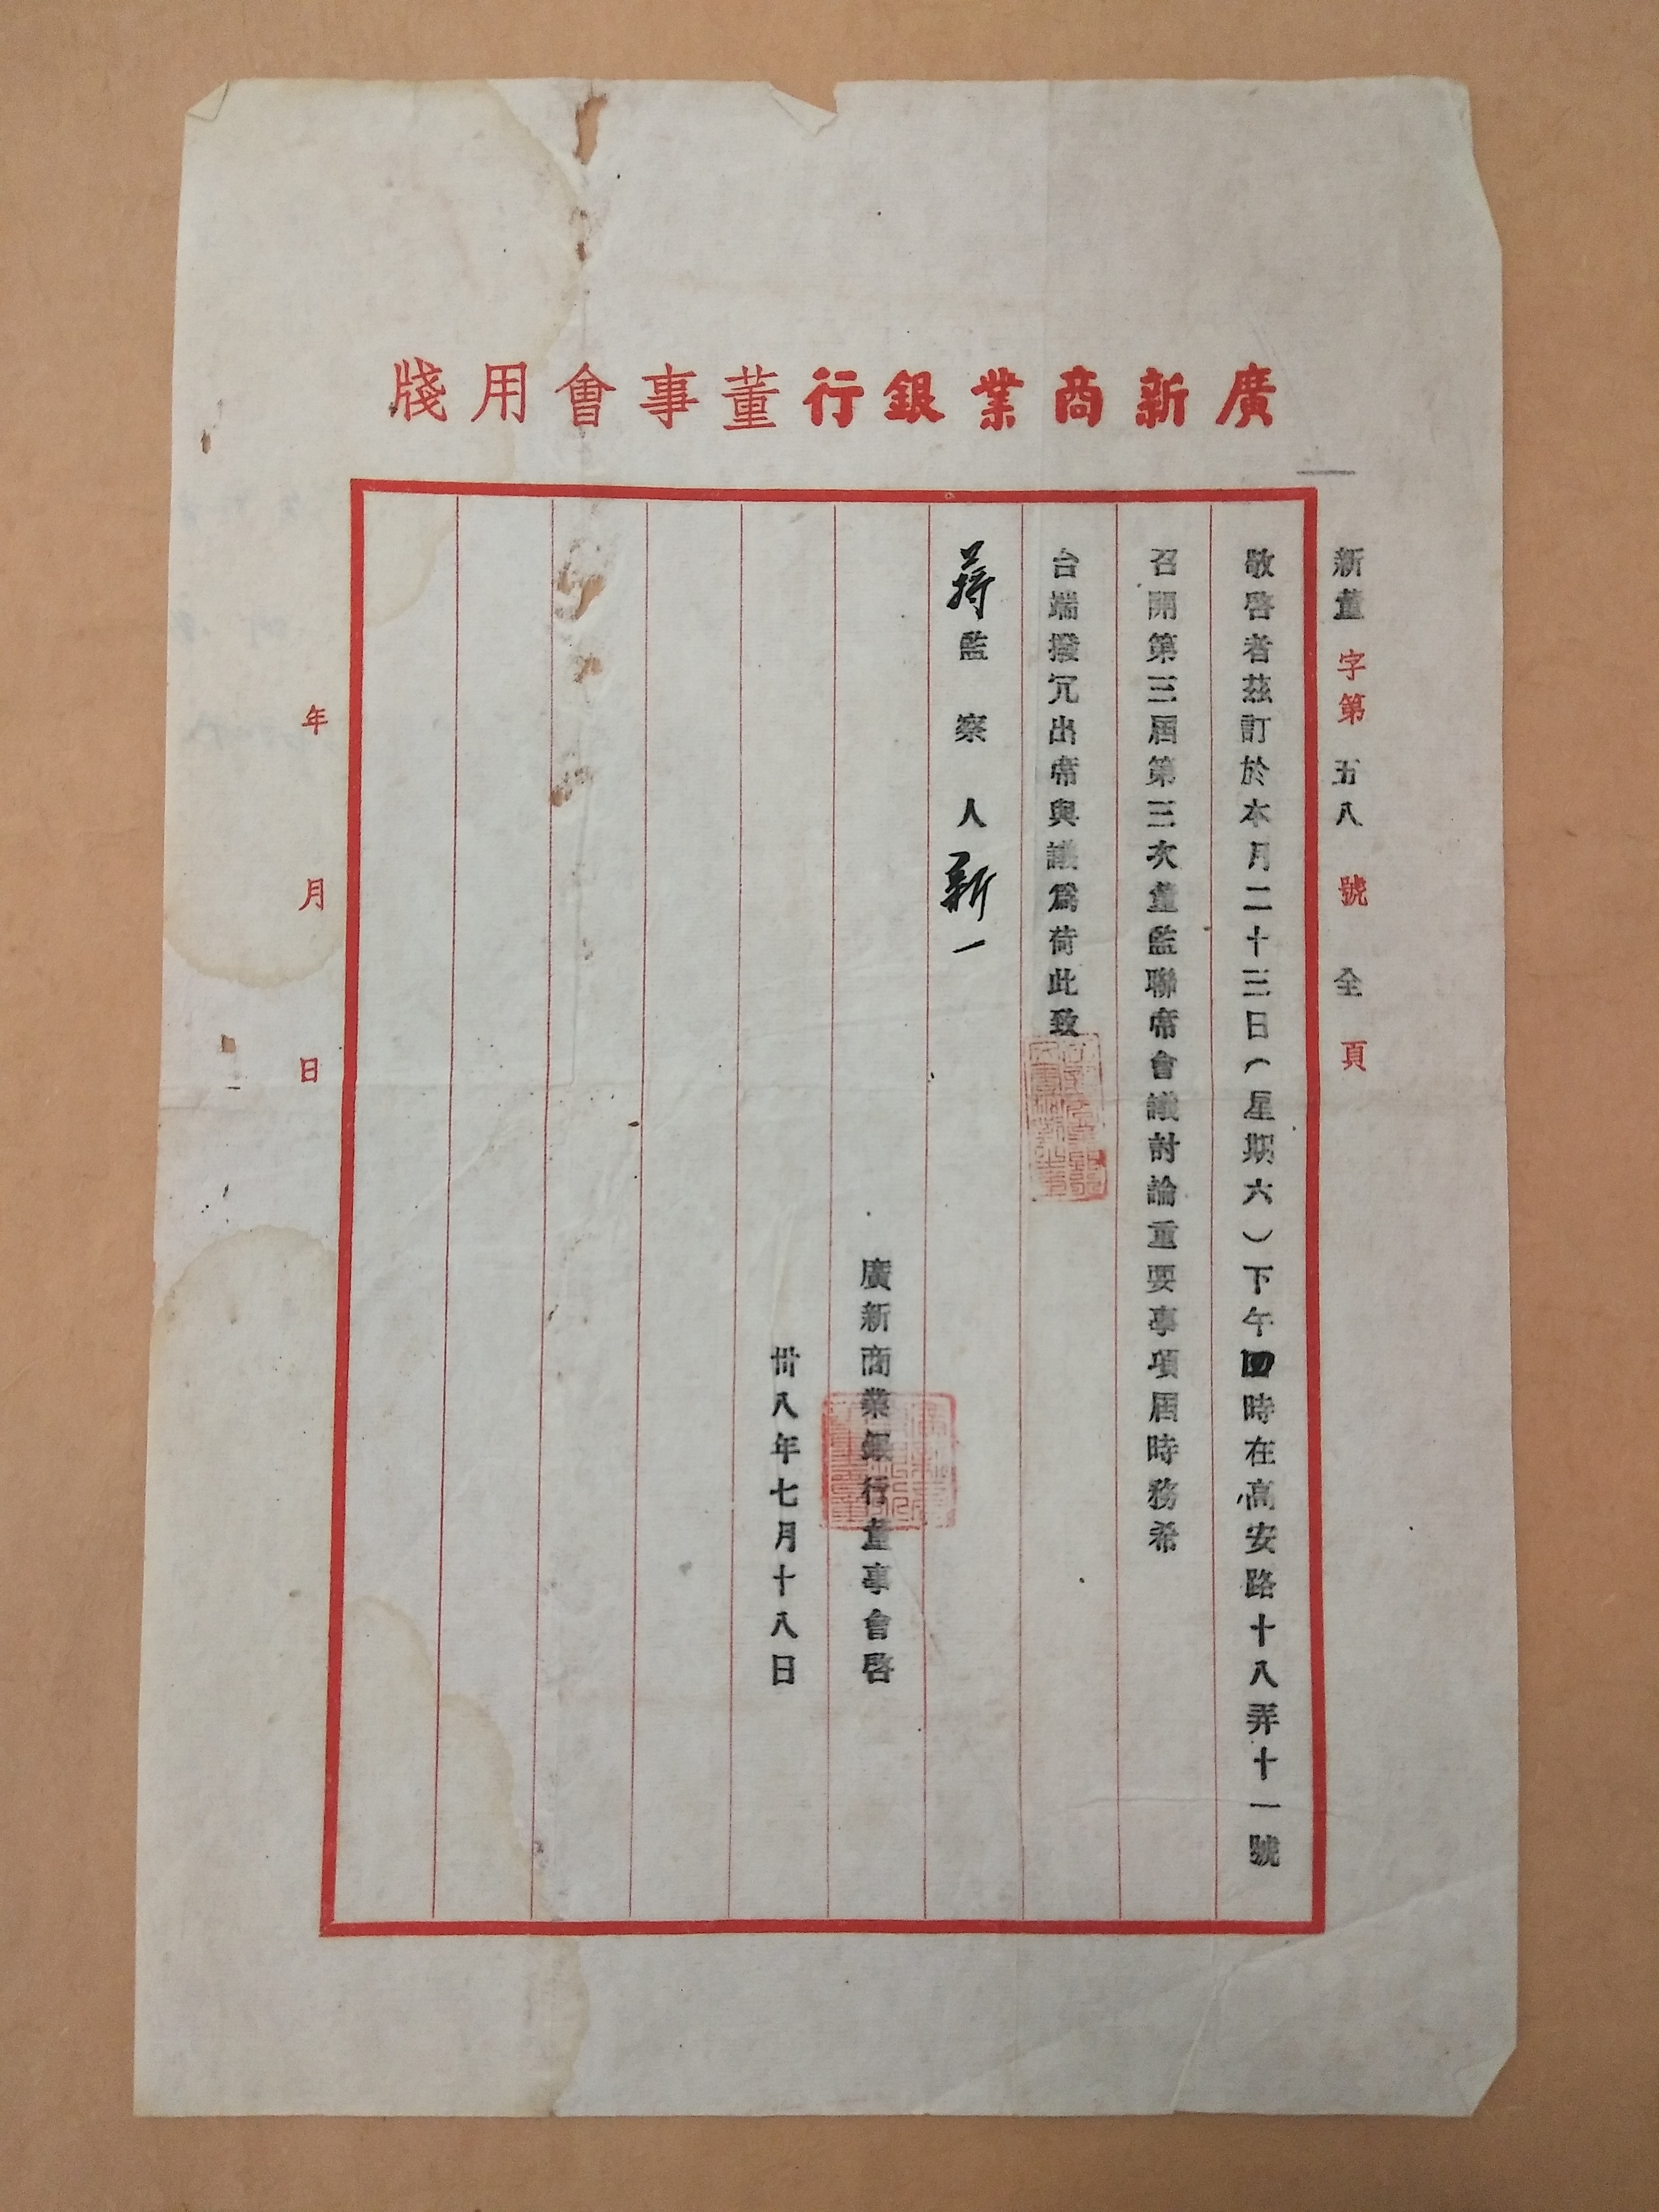 廣新商業銀行董事會用牋
新董字第五八號全頁
敬啓者茲訂於本月二十三日(星期六)下午四時在高安路十八弄十一號
召開第三屆第三次董監聯席會議討論重要事項屆時務希
台端撥冗出席與議爲荷此致
蔣監察人新一
廣新商業銀行董事會啓
卅八年七月十八日
年月日